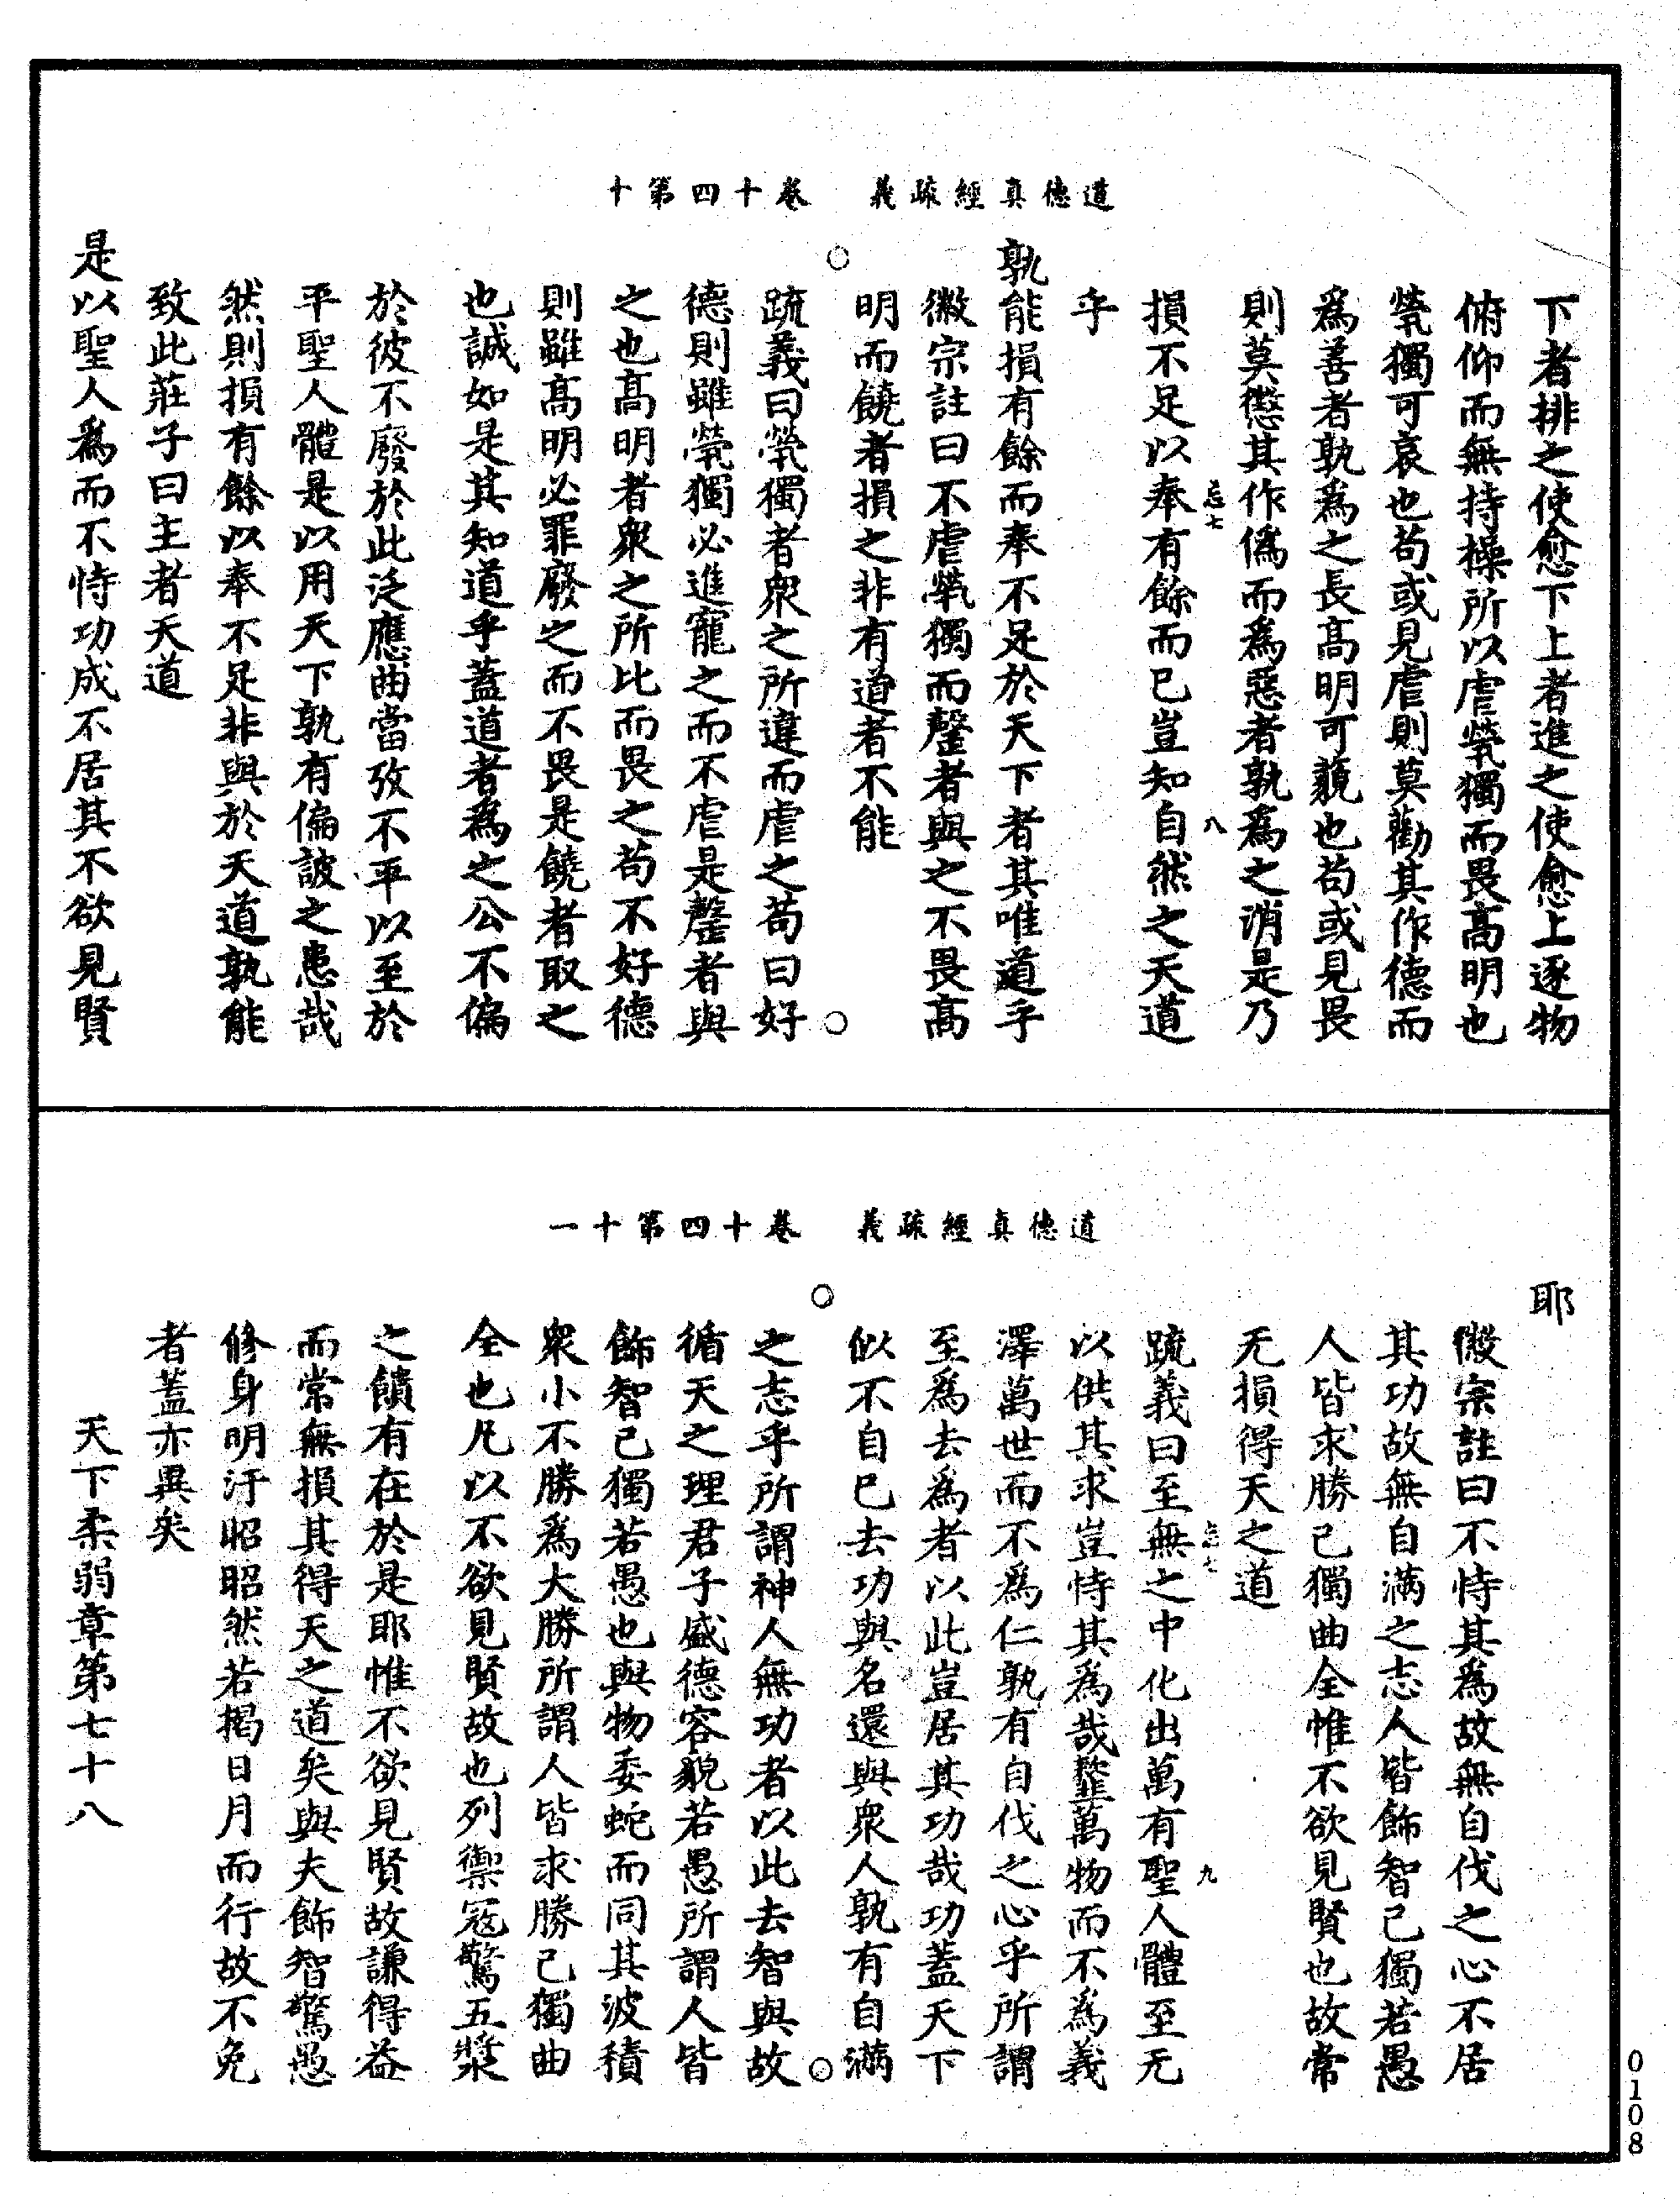 道德真經疏義　卷十四第十
下者排之使愈下上者進之使愈上逐物
俯仰而無持操所以虐煢獨而畏高明也
煢獨可哀也苟或見虐則莫勸其作德而
爲善者孰爲之長高明可藐也苟或見畏
則莫懲其作僞而爲惡者孰爲之消是乃
忘七　八
損不足以奉有餘而已豈知自然之天道
乎
孰能損有餘而奉不足於天下者其唯道乎
徽宗註曰不虐煢獨而罄者與之不畏高
明而饒者損之非有道者不能
疏義曰煢獨者衆之所違而虐之苟曰好
德則雖煢獨必進寵之而不虐是罄者與
之也高明者衆之所比而畏之苟不好德
則雖高明必罪廢之而不畏是饒者取之
也誠如是其知道乎蓋道者爲之公不偏
於彼不廢於此泛應曲當攷不平以至於
平聖人體是以用天下孰有偏詖之患哉
然則損有餘以奉不足非與於天道孰能
致此莊子曰主者天道
是以聖人爲而不恃功成不居其不欲見賢
道德真經疏義　卷十四第十一
耶
徽宗註曰不恃其爲故無自伐之心不居
其功故無自滿之志人皆飾智己獨若愚
人皆求勝己獨曲全惟不欲見賢也故常
无損得天之道
忘七　九
疏義曰至無之中化出萬有聖人體至无
以供其求豈恃其爲哉䪠萬物而不爲義
澤萬世而不爲仁孰有自伐之心乎所謂
至爲去爲者以此豈居其功哉功蓋天下
似不自已去功與名還與衆人孰有自滿
之志乎所謂神人無功者以此去智與故
循天之理君子盛德容貌若愚所謂人皆
飾智己獨若愚也與物委蛇而同其波積
衆小不勝爲大勝所謂人皆求勝己獨曲
全也凡以不欲見賢故也列禦寇驚五漿
之饋有在於是耶惟不欲見賢故謙得益
而常無損其得天之道矣與夫飾智驚愚
修身明汙昭昭然若揭日月而行故不免
者蓋亦異矣
天下柔弱章第七十八
0108